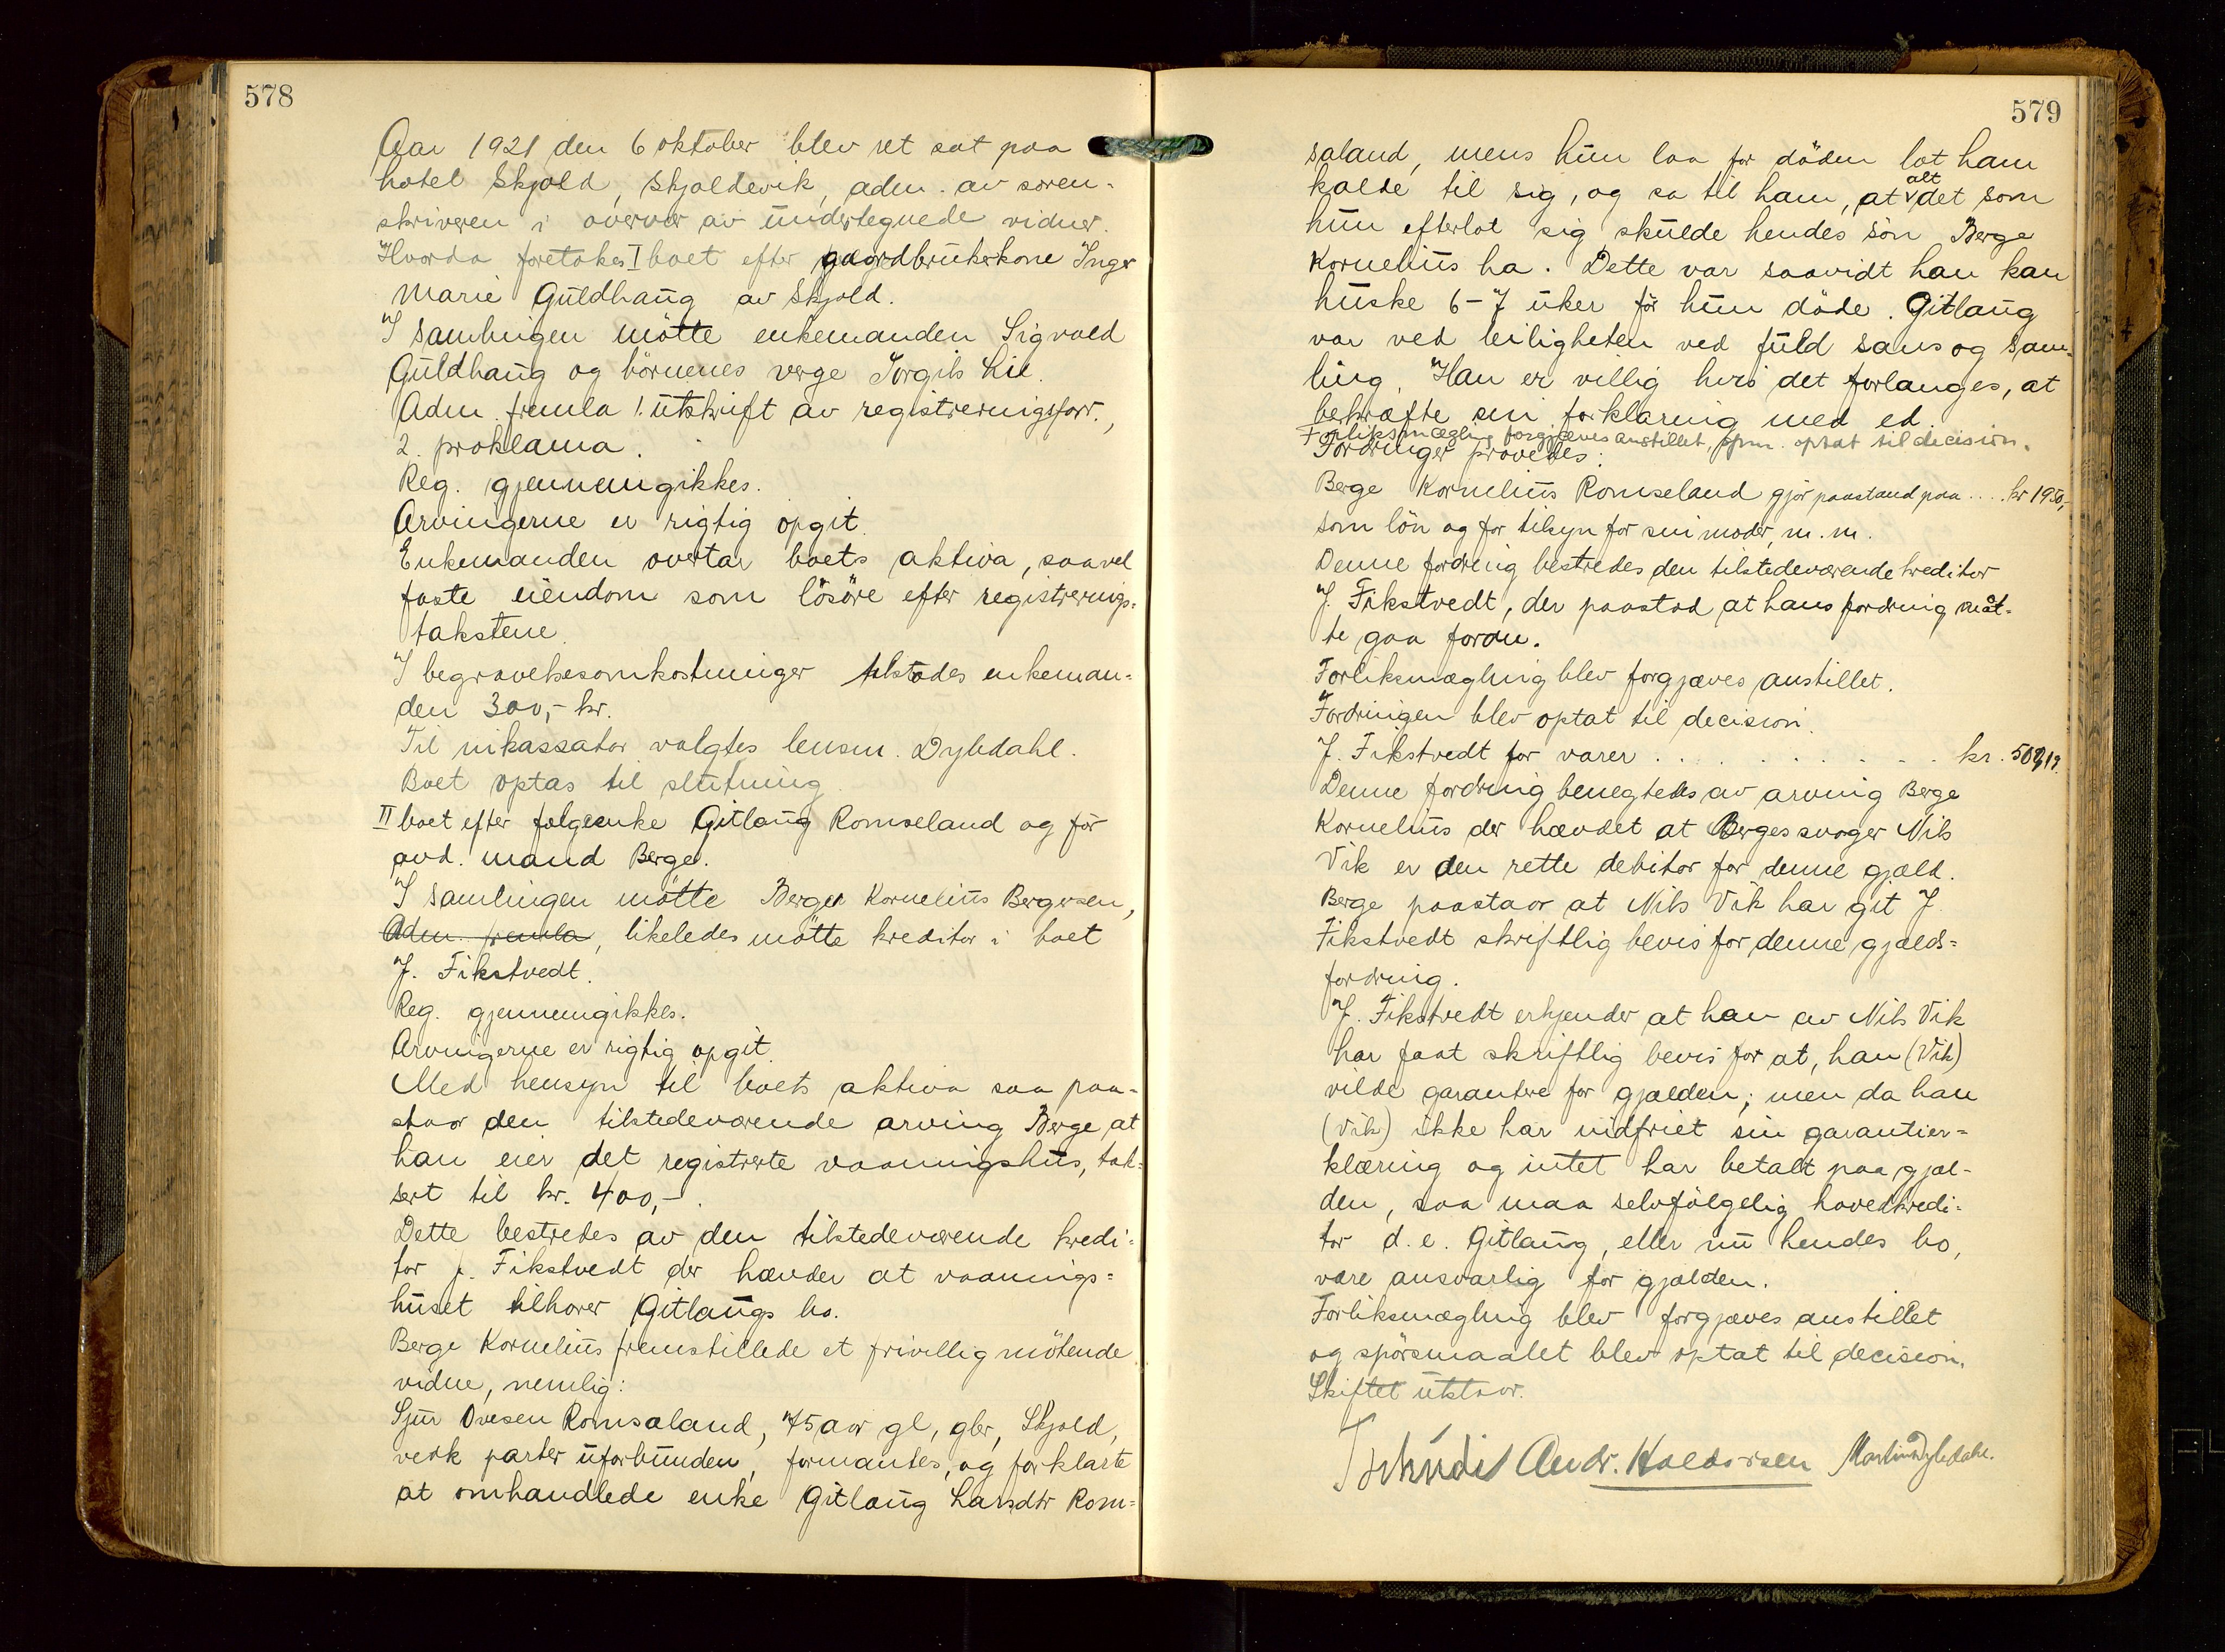 578
Aar 1921 den 6 oktober blev ret sat paa
hotel Skjold, Skjoldevik, adm. av soren-
skriveren i overvær av undertegnede vidner.
Hvorda foretokes I boet efter gaardbrukerkone Inger
Marie Guldhaug av Skjold.
I samlingen mötte enkemanden Sigvald
Guldhaug og börnenes verge Torgils Lie.
Adm. fremla 1. utskrift av registreringsforr.,
2. proklama.
Reg. gjennemgikkes.
Arvingerne er rigtig opgit.
Enkemanden overtar boets aktiva, saavel
faste eiendom som lösöre efter registrerings-
takstene.
I begravelsesomkostninger tilstodes enkeman-
den 300,- kr.
Til inkassator valgtes lensm. Dybdahl.
Boet optas til slutning.
II boet efter fölgeenke Gitlaug Romseland og för
avd. mand Berge.
I samlingen mötte Berge Kornelius Bergersen,
Adm. fremla, likeledes mötte kreditor i boet
J. Fikstvedt.
Reg. gjennemgikkes.
Arvingerne er rigtig opgit.
Med hensyn til boets aktiva saa paa-
staar den tilstedeværende arving Berge at
han eier det registrerte vaaningshus, tak-
sert til kr. 400,-.
Dette bestredes av den tilstedeværende kredi-
tor J. Fikstvedt der hævder at vaanings-
huset tilhörer Gitlaugs bo.
Berge Kornelius fremstillede et frivillig mötende
vidne, nemlig:
Sjur Ovesen Romsaland, 75 aar gl, gbr, Skjold,
vedk parter uforbunden, formantes, og forklarte
at omhandlede enke Gitlaug Larsdtr Rom-
579
saland, mens hun laa for döden lot ham
kalde til sig, og sa til ham, at alt det som
hun efterlot sig skulde hendes sön Berge
Kornelius ha. Dette var saavidt han kan
huske 6-7 uker för hun döde. Gitlaug
var ved leiligheten ved fuld sans og sam-
ling. Han er villig hvis det forlanges, at
bekræfte sin forklaring med ed.
Forliksmægling forgjæves anstillet, spm. optat til decision.
Fordringer prövedes:
Berge Kornelius Romseland gjör paastand paa .... kr 1950,
som lön og for tilsyn for sin moder, m.m.
Denne fordring bestredes den tilstedeværende kreditor
J. Fikstvedt, der paastod at hans fordring måt-
te gaa foran.
Forliksmægling blev forgjæves anstillet.
Fordringen blev optat til decision.
J. Fikstvedt for varer . . . . . . . . . . kr.
Denne fordring benegtedes av arving Berge
Kornelius der hævdet at Berges svoger Nils
Vik er den rette debitor for denne gjæld.
Berge paastaar at Nils Vik har git J.
Fikstvedt skriftlig bevis for denne gjælds-
fordring.
J. Fikstvedt erkjender at han av Nils Vik
har faat skriftlig bevis for at, han (Vik)
vilde garantere for gjælden; men da han
(Vik) ikke har indfriet sin garantier-
klæring og intet har betalt paa gjæl-
den, saa maa selvfölgelig hovedkredi-
tor d.e. Gitlaug, eller nu hendes bo,
være ansvarlig for gjælden.
Forliksmægling blev forgjæves anstillet
og spörsmaalet blev optat til decision.
Skiftet utstaar.
Andr. Haldorsen Martin Dybdahl.